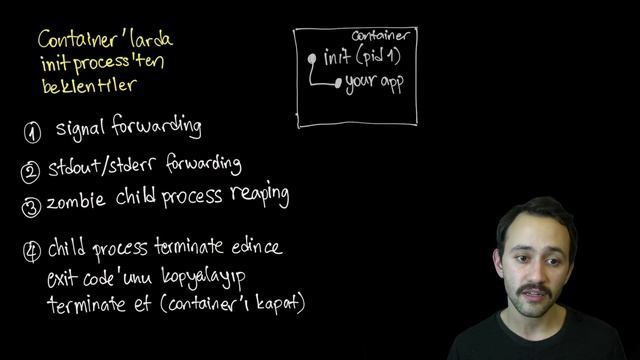 Container'larda
init process'ten
beklentiler
① signal forwarding
② stdout/stderr forwarding
③ zombie child process reaping
④ child process terminate edince
exit code'unu kopyalayıp
terminate et (container'ı kapat)
container
init (pid 1)
your app